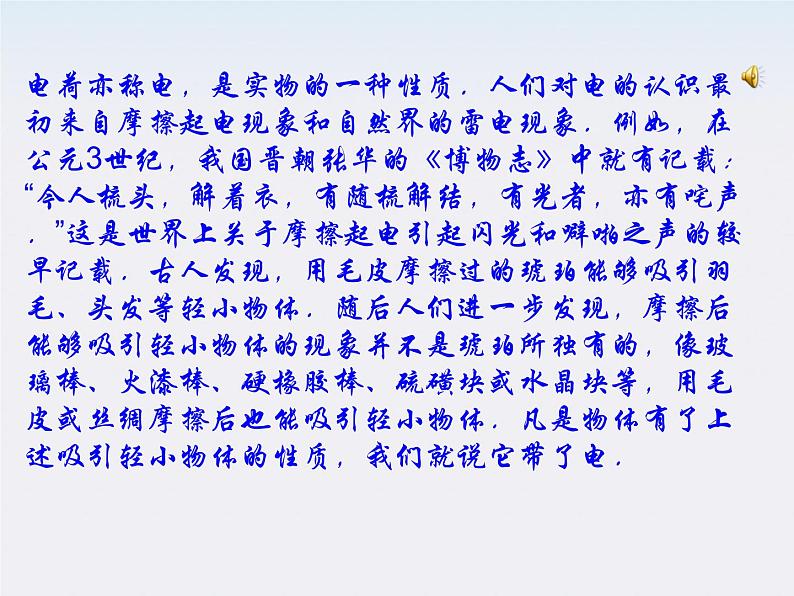 电荷亦称电，是实物的一种性质．人们对电的认识最
初来自摩擦起电现象和自然界的雷电现象．例如，在
公元3世纪，我国晋朝张华的《博物志》中就有记载：
“今人梳头，解着衣，有随梳解结，有光者，亦有咤声
．”这是世界上关于摩擦起电引起闪光和噼啪之声的较
早记载．古人发现，用毛皮摩擦过的琥珀能够吸引羽
毛、头发等轻小物体．随后人们进一步发现，摩擦后
能够吸引轻小物体的现象并不是琥珀所独有的，像玻
璃棒、火漆棒、硬橡胶棒、硫磺块或水晶块等，用毛
皮或丝绸摩擦后也能吸引轻小物体．凡是物体有了上
述吸引轻小物体的性质，我们就说它带了电．